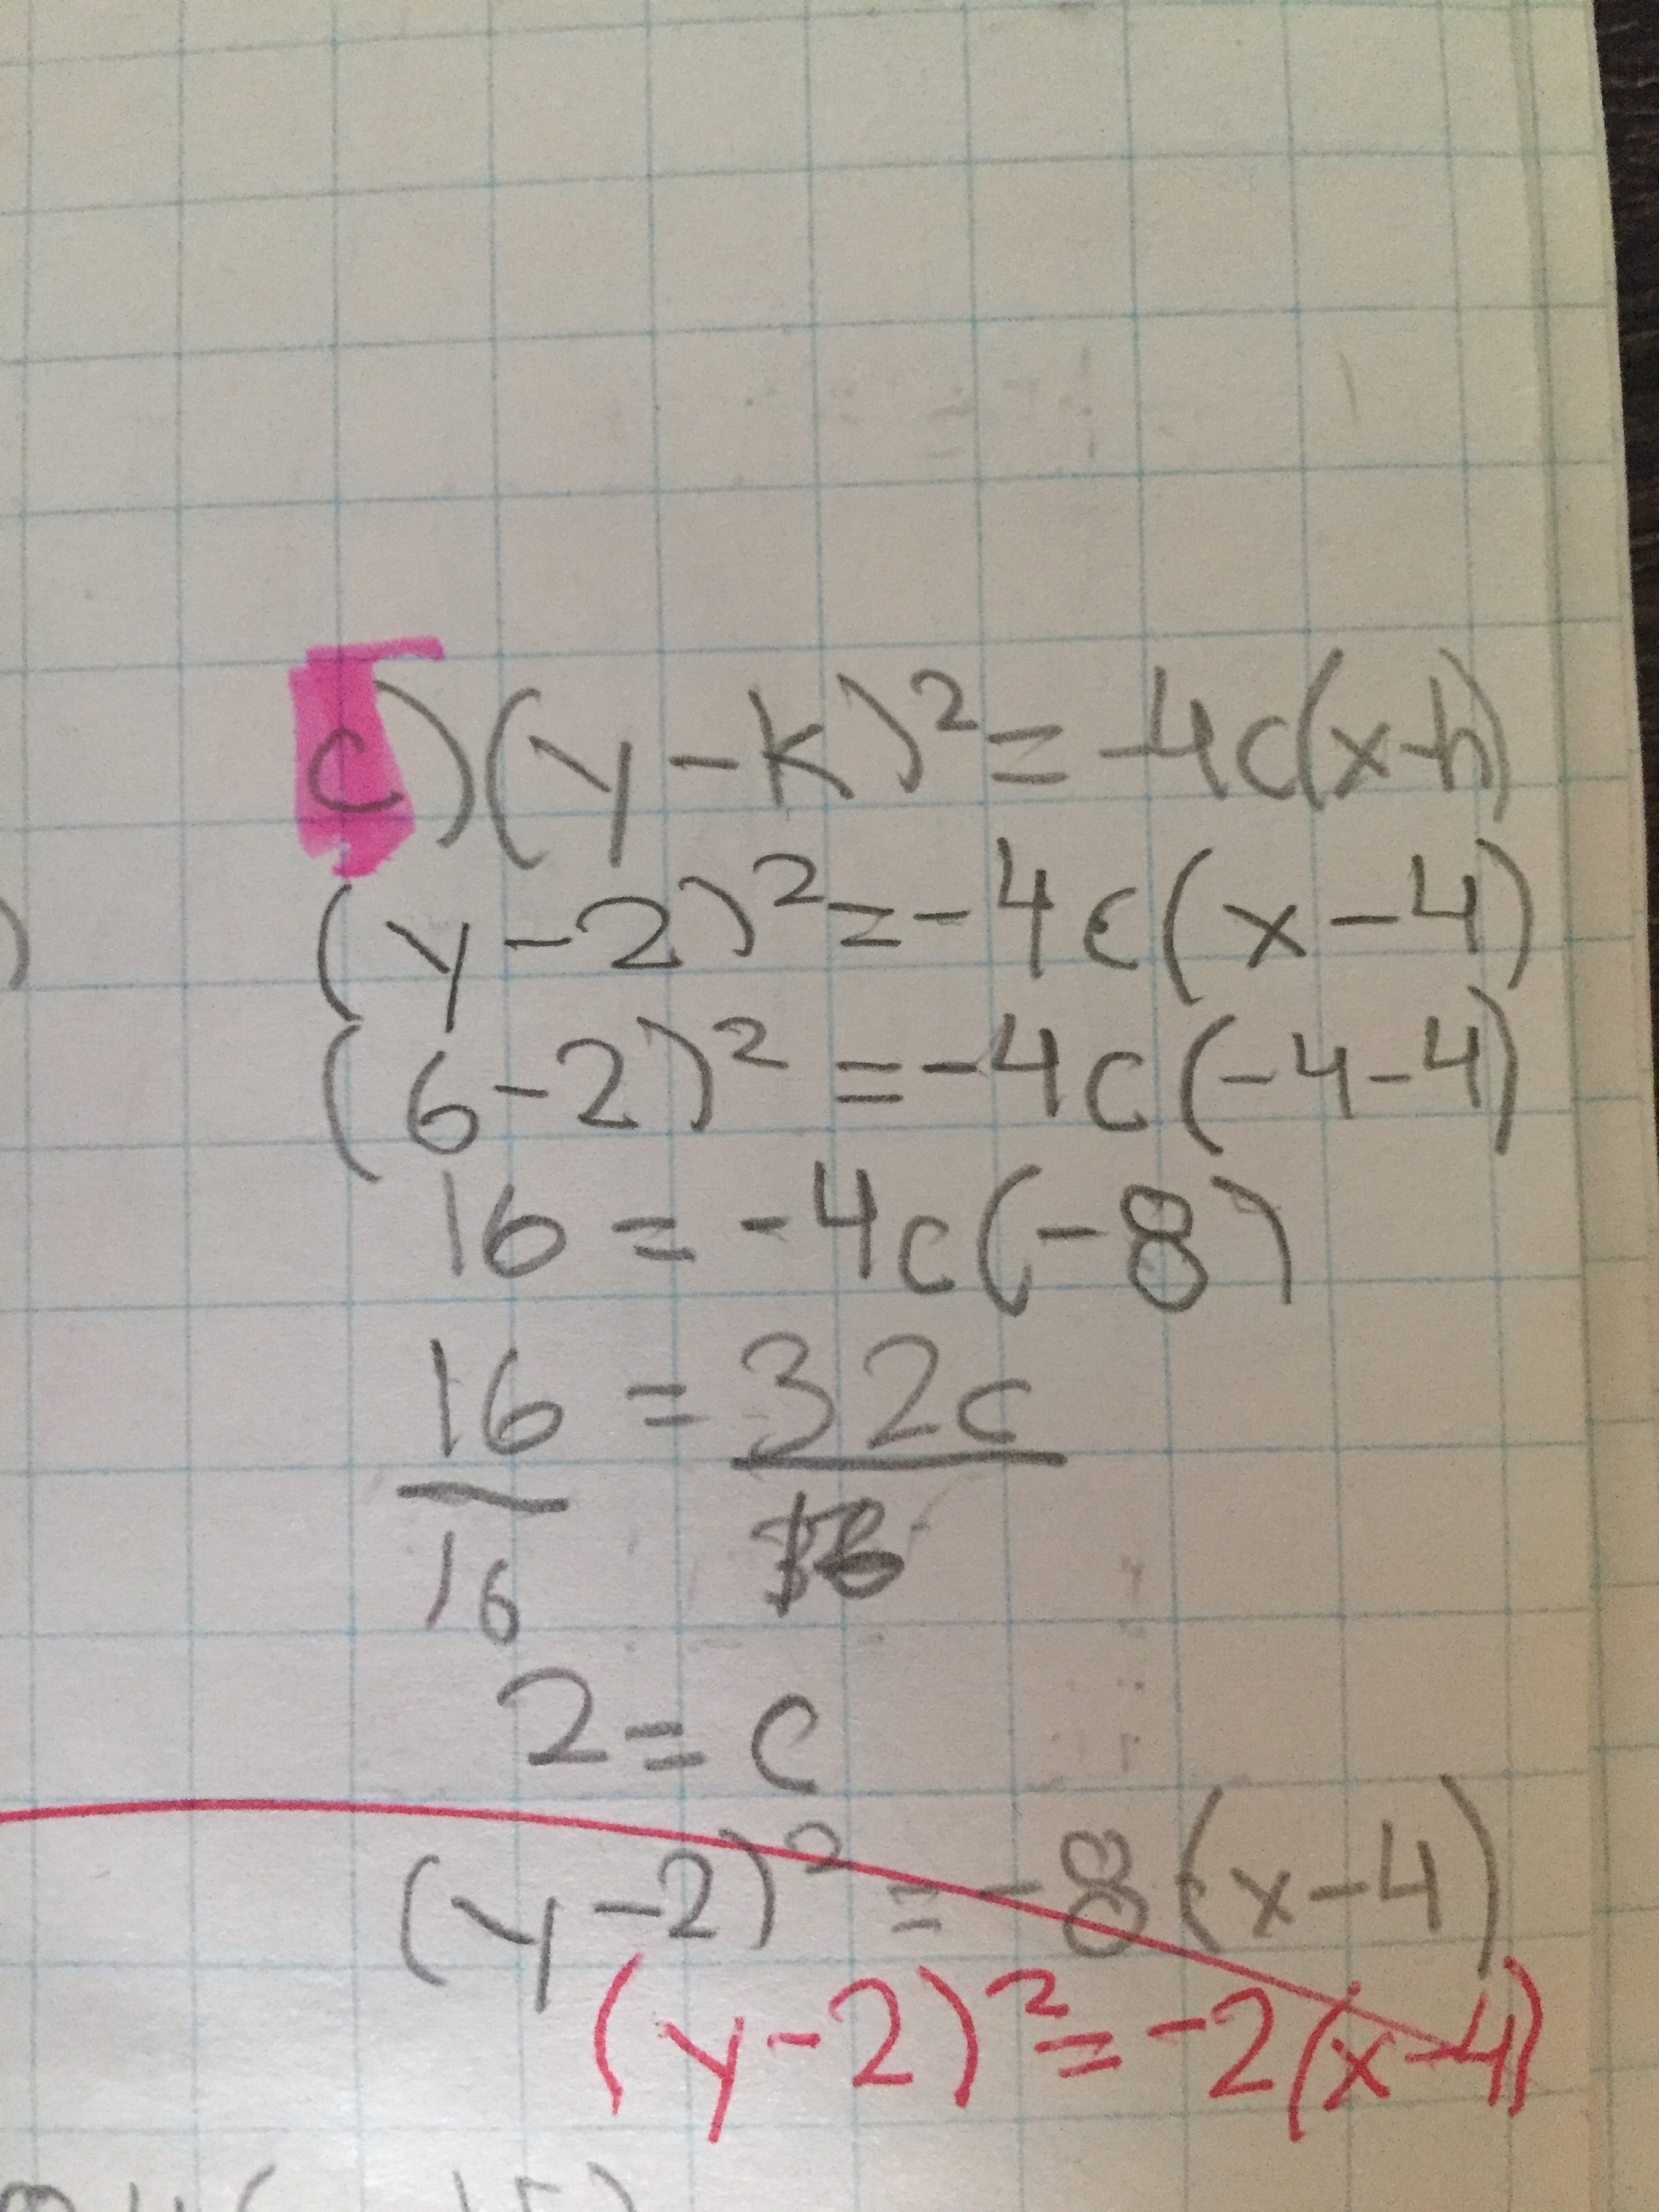 c) (y-k)² = -4c(x-h)
(y-2)² = -4c(x-4)
(6-2)² = -4c(-4-4)
16 = -4c(-8)
16 = 32c
16 16
2 = c
(y-2)² = -8(x-4)
(y-2)² = -2(x-4)